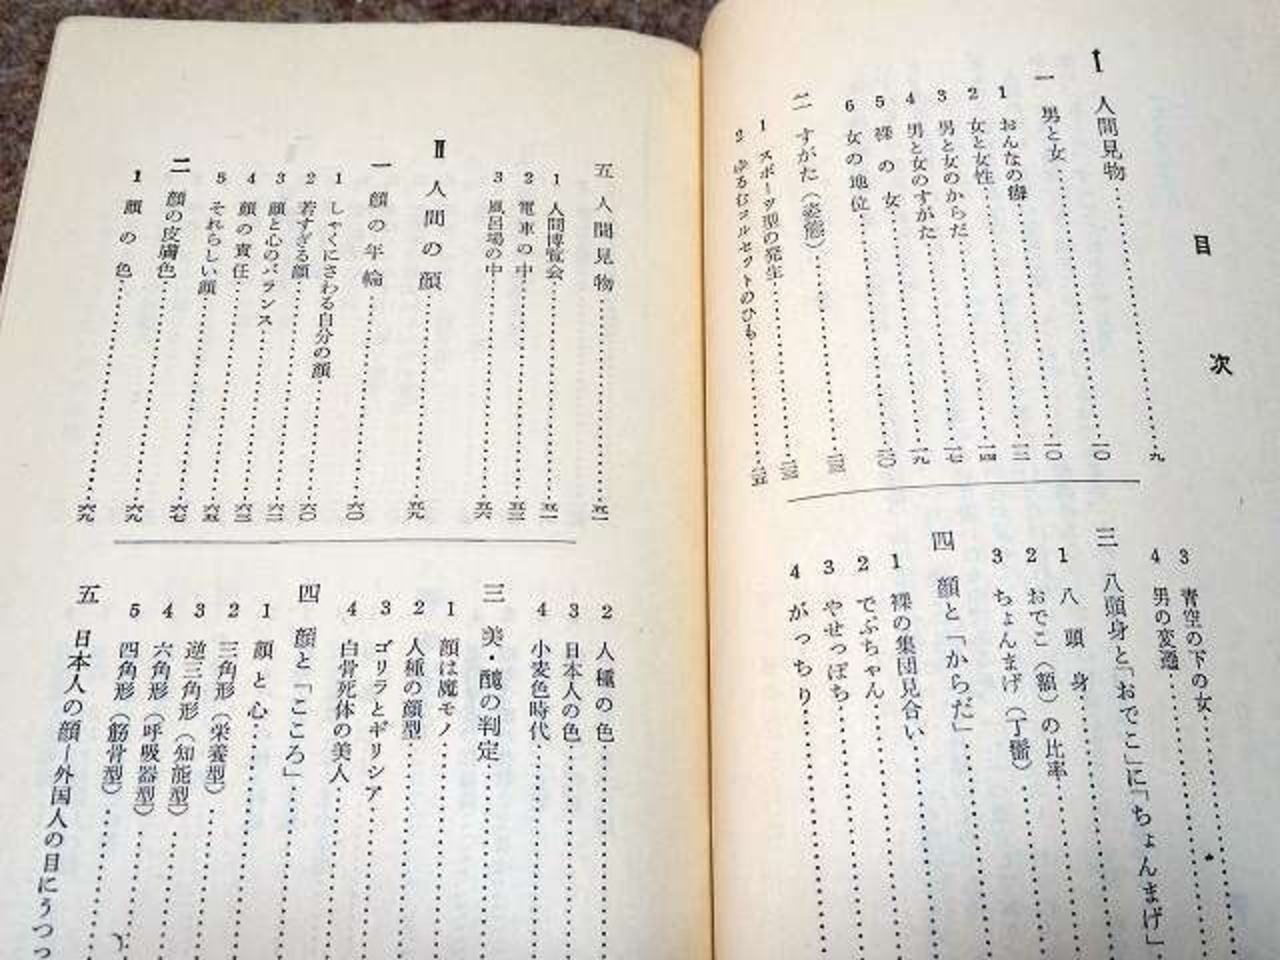 目次
I 人間見物……九
一 男と女……一〇
1 おんなの癖……一二
2 女と女性……一四
3 男と女のからだ……一七
4 男と女のすがた……一九
5 裸の女
6 女の地位……二〇
二 すがた（姿態）……二三
1 スポーツ型の発生……二三
2 ゆるむコルセットのひも……二五
3 青空の下の女
4 男の変遷
三 八頭身と「おでこ」に「ちょんまげ」
1 八頭身
2 おでこ（額）の比率
3 ちょんまげ（丁髷）
四 顔と「からだ」
1 裸の集団見合い
2 でぶちゃん
3 やせっぽち
4 がっちり
五 人間見物……五一
1 人間博覧会……五一
2 電車の中……五三
3 風呂場の中……五六
II 人間の顔……五九
一 顔の年輪……六〇
1 しゃくにさわる自分の顔……六〇
2 若すぎる顔……六一
3 顔と心のバランス
4 顔の責任……六三
5 それらしい顔……六五
二 顔の皮膚色……六七
1 顔の色……六九
2 人種の色
3 日本人の色
4 小麦色時代
三 美・醜の判定
1 顔は魔モノ
2 人種の顔型
3 ゴリラとギリシア
4 白骨死体の美人
四 顔と「こころ」
1 顔と心
2 三角形（栄養型）
3 逆三角形（知能型）
4 六角形（呼吸器型）
5 四角形（筋骨型）
五 日本人の顔―外国人の目にうつっ